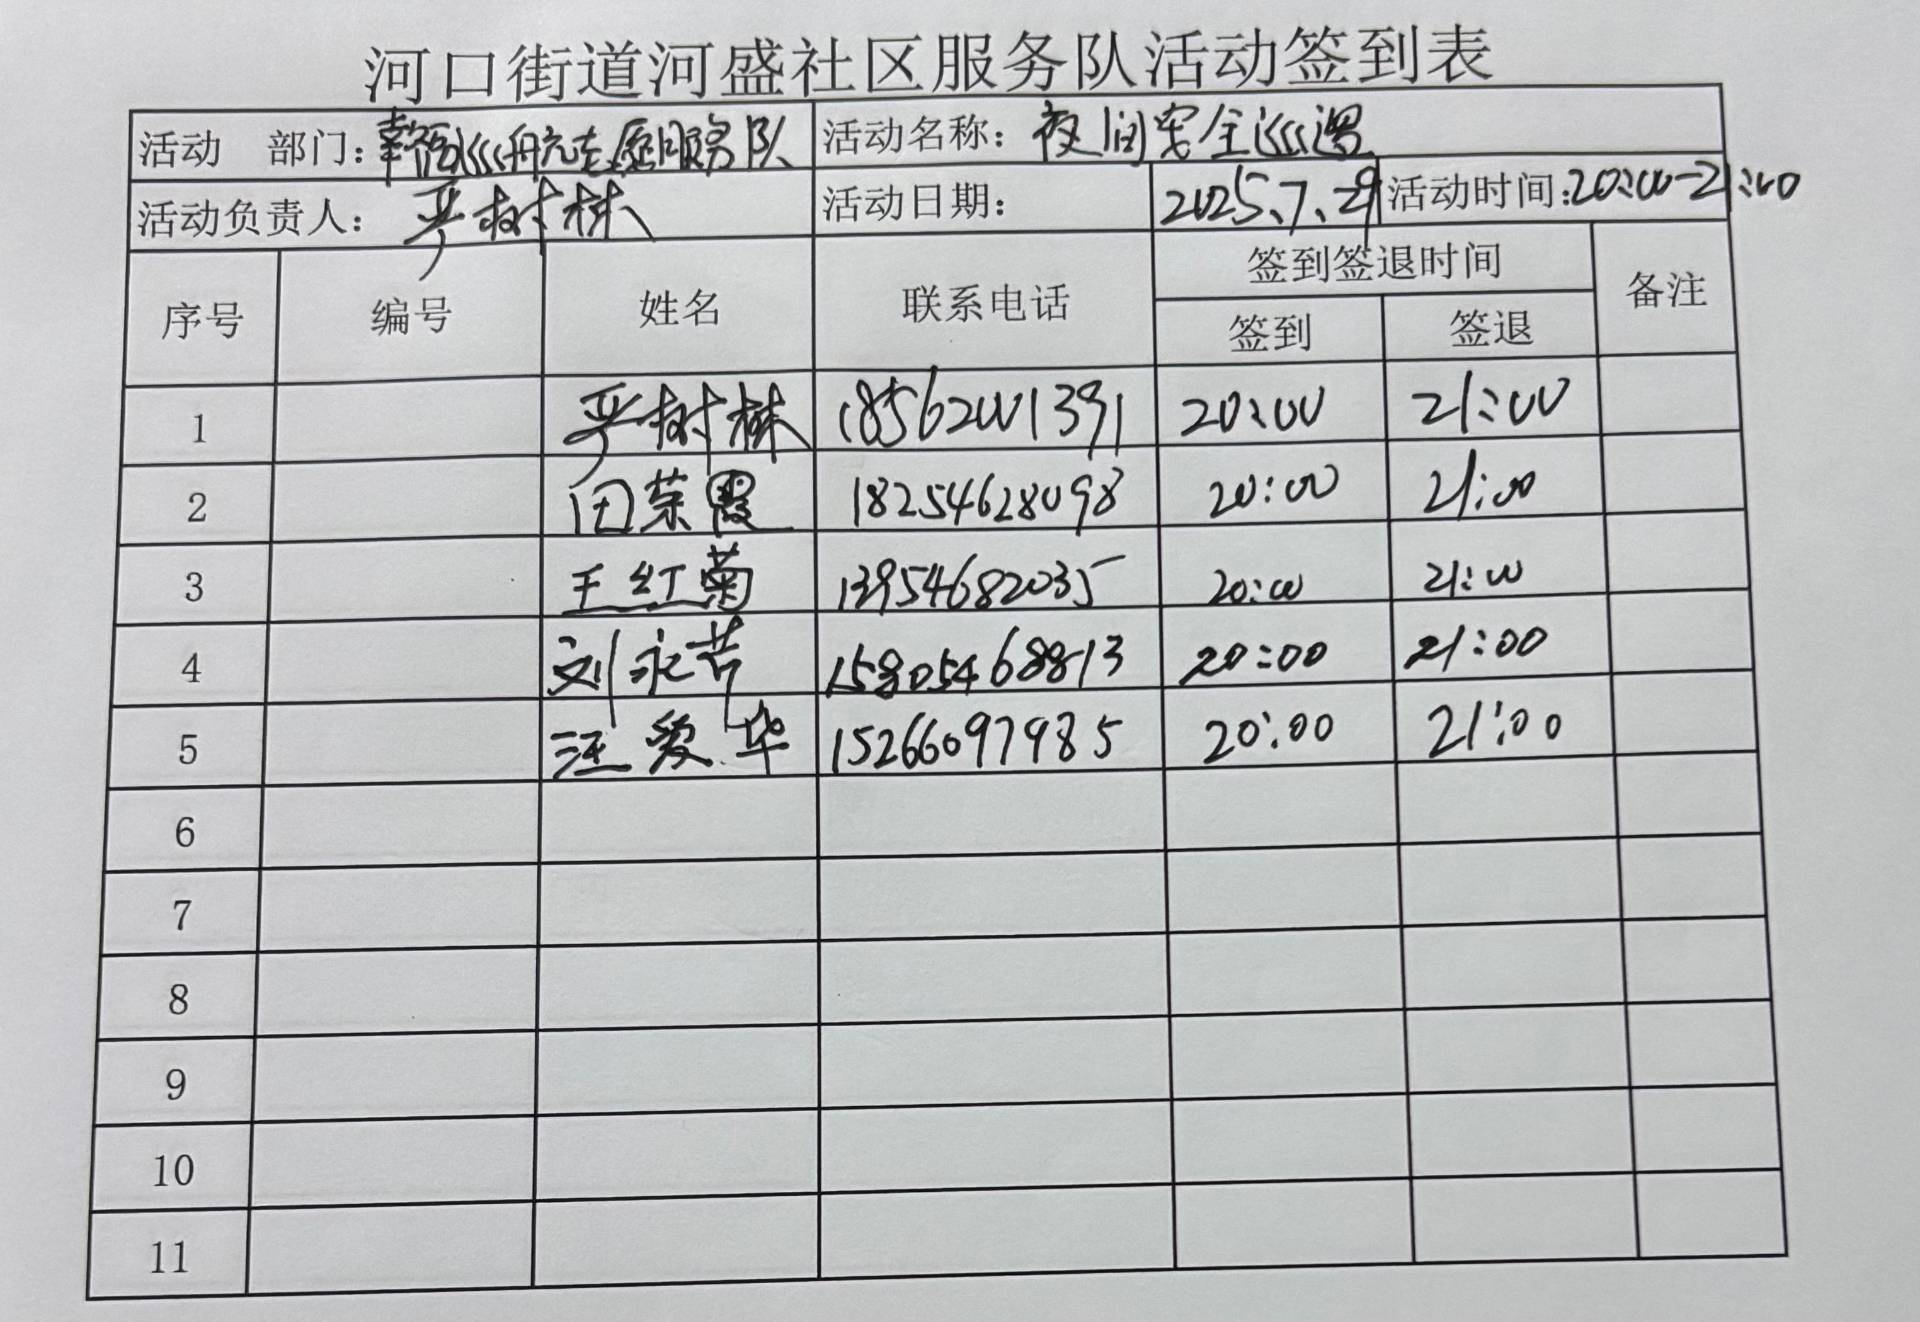 河口街道河盛社区服务队活动签到表
活动 部门：幸福巡航志愿服务队 活动名称：夜间安全巡逻
活动负责人：严树林 活动日期： 2025、7、29 活动时间：20:00-21:00
序号 编号 姓名 联系电话 签到签退时间 备注
签到 签退
1 严树林 18562001391 20:00 21:00
2 田荣霞 18254628098 20:00 21:00
3 王红菊 13954682035 20:00 21:00
4 刘永芳 15805468813 20:00 21:00
5 汪爱华 15266097985 20:00 21:00
6
7
8
9
10
11